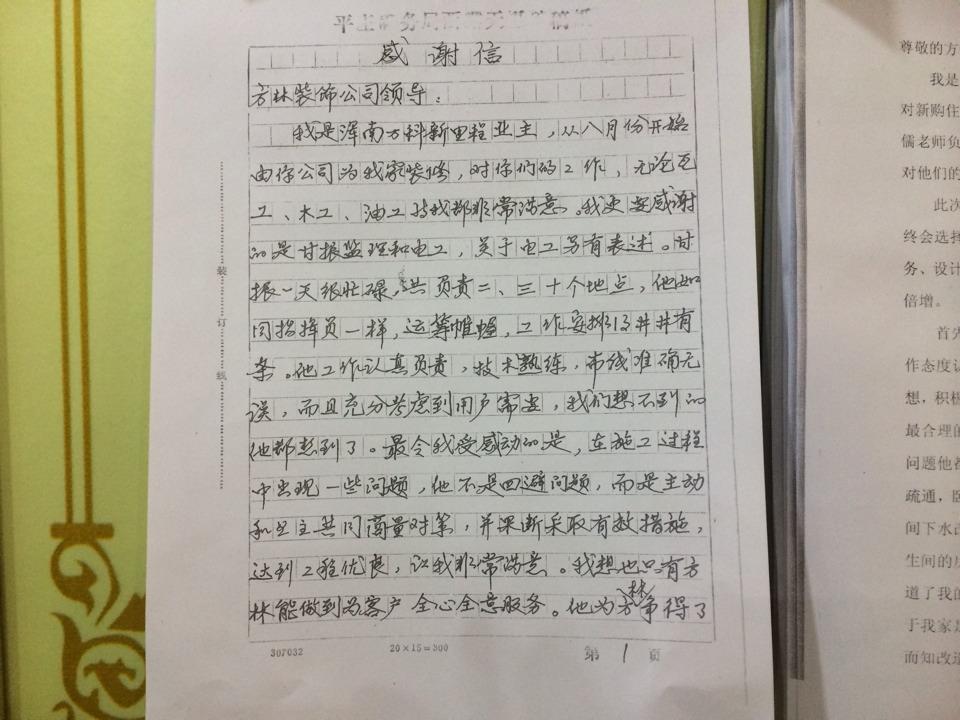 感谢信
方林装饰公司领导：
我是浑南万科新里程业主，从八月份开始
由你公司为我家装修，对你们的工作，无论瓦
工、木工、油工等我都非常满意。我更要感谢
的是甘振监理和电工，关于电工另有表述。甘
振一天很忙碌，共负责二、三十个地点，他如
同指挥员一样，运筹帷幄，工作安排得井井有
条。他工作认真负责，技术熟练，布线准确无
误，而且充分考虑到用户需要，我们想不到的
他都想到了。最令我受感动的是，在施工过程
中出现一些问题，他不是回避问题，而是主动
和业主共同商量对策，并果断采取有效措施，
达到工程优良，让我非常满意。我想也只有方
林能做到为客户全心全意服务。他为方林争得了
307032
20×15=300
第 1 页
装
订
线
尊敬的方
我是
对新购住
儒老师负
对他们的
此次
终会选择
务、设计
倍增。
首先
作态度认
想，积极
最合理的
问题他都
疏通，
间下水改
生间的
道了我的
于我家是
而知改造